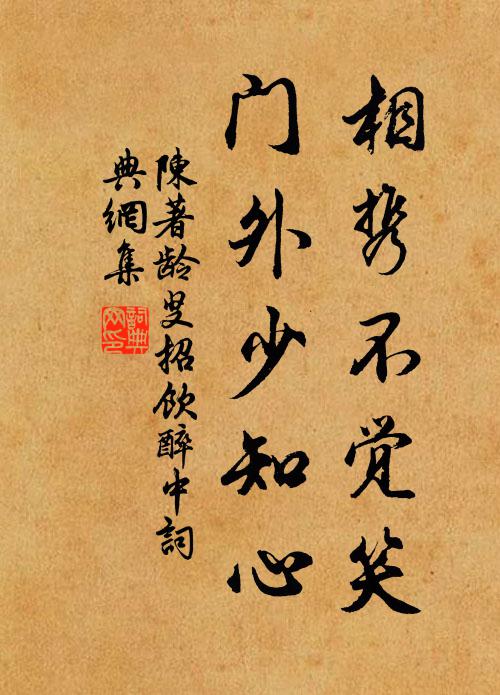 相携不觉笑
门外少知心
陳著龄叟招飲醉中詞
典網集
詞典
网印